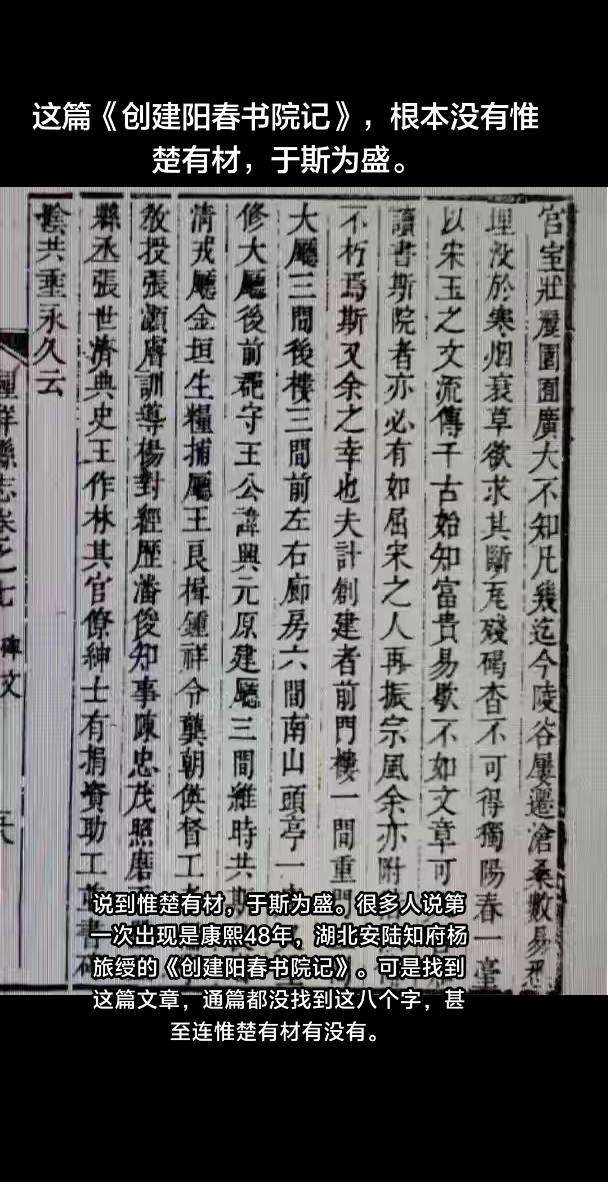 这篇《创建阳春书院记》，根本没有惟
楚有材，于斯为盛。
宫室壯麗園囿廣大不知凡幾迄今陵谷屢遷滄桑數易
埋没於寒烟蓑草欲求其斷瓦殘碣杳不可得獨陽春一臺
以宋玉之文流傳千古始知富貴易歇不如文章可
讀書斯院者亦必有如屈宋之人再振宗風余亦附
不朽焉斯又余之幸也夫計創建者前門樓一間重門
大廳三間後樓三間前左右廊房六間南山頭亭一
修大廳後前郡守王公諱興元原建廳三間維時共
清戎廳金垣生糧捕廳王良楫鍾祥令龔朝俠督工
教授張灝膚訓導楊對經歷潘俊知事陳忠茂照磨
縣丞張世濟典史王作林其官僚紳士有捐資助工
陰共垂永久云
鍾祥縣志卷之七 碑文
说到惟楚有材，于斯为盛。很多人说第
一次出现是康熙48年，湖北安陆知府杨
旅绶的《创建阳春书院记》。可是找到
这篇文章，通篇都没找到这八个字，甚
至连惟楚有材有没有。